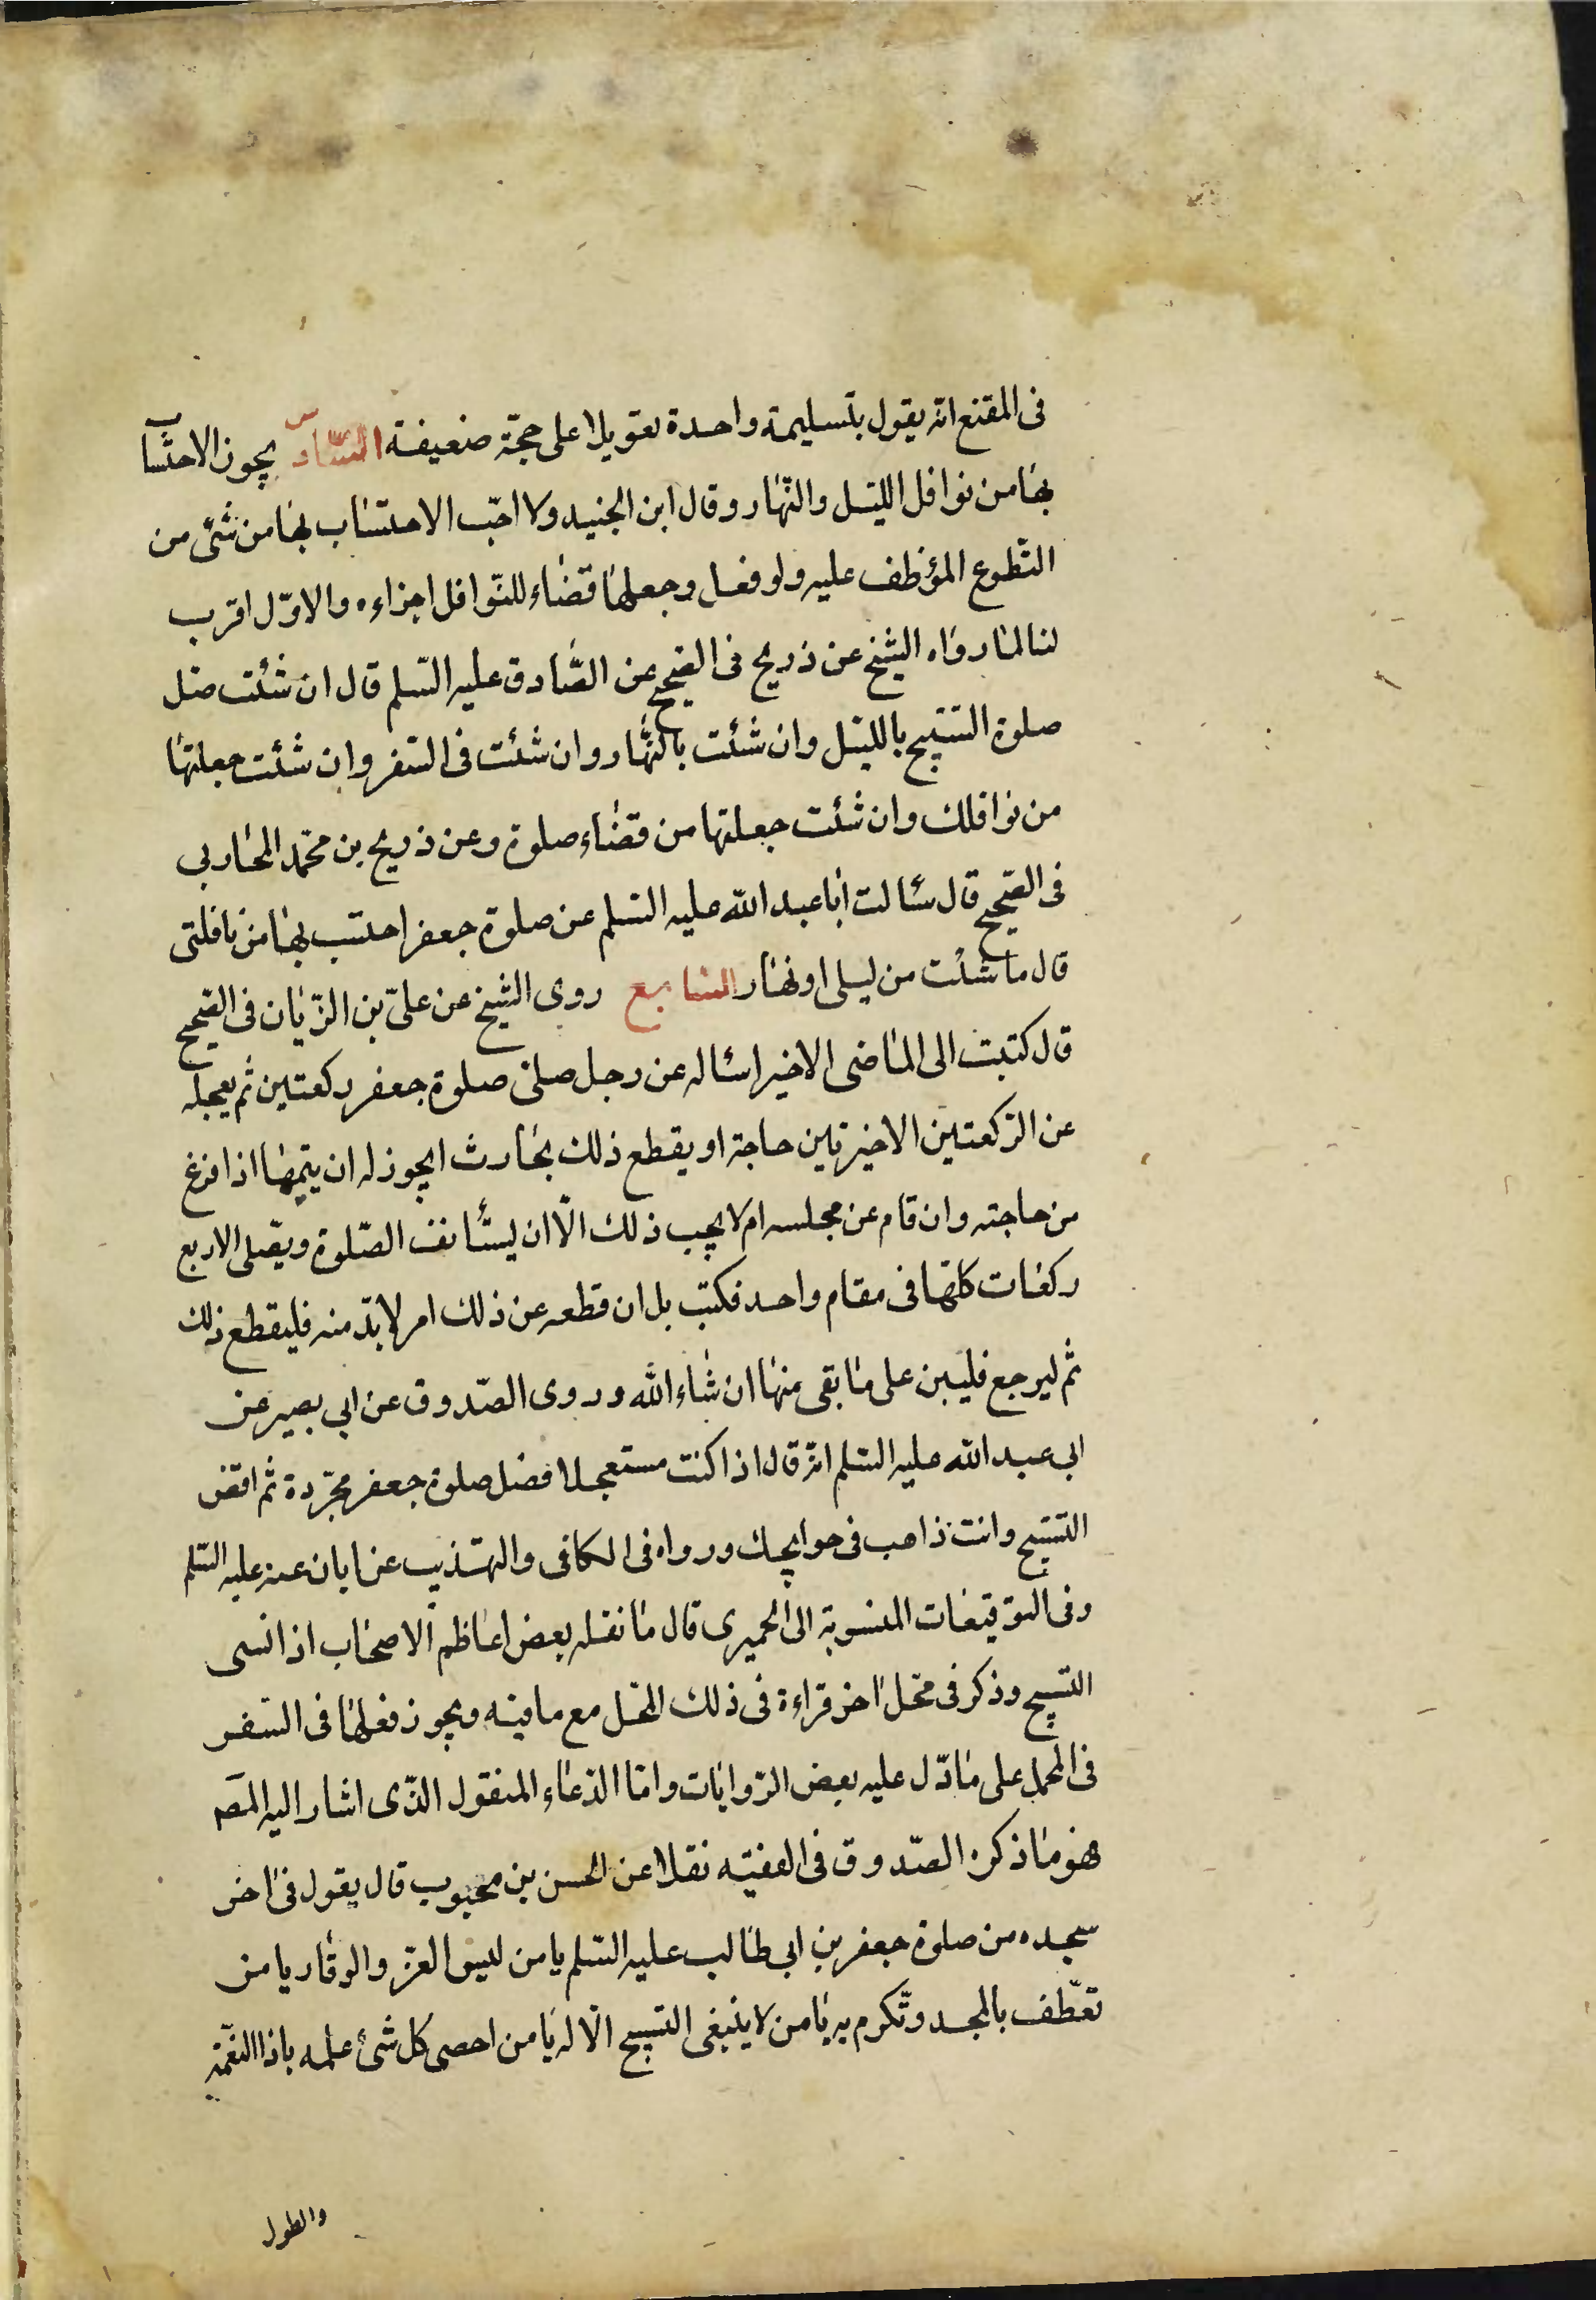 فى المقنع انه يقول بتسليمة واحدة تعويلا على حجّة ضعيفة السّادس يجوز الاحتساب
بها من نوافل الليل والنّهار وقال ابن الجنيد ولا احبّ الاحتساب بها من شئ من
التّطوع المؤظف عليه ولو فعل وجعلها قضاء للنّوافل اجزاءه والاوّل اقرب
لنا لما رواه الشيخ عن ذريح فى الصّحيح عن الصّادق عليه السّلم قال ان شئت صل
صلوة التسبيح بالليل وان شئت بالنّهار وان شئت فى السّفر وان شئت جعلتها
من نوافلك وان شئت جعلتها من قضاء صلوة وعن ذريح بن محمّد المحاربى
فى الصّحيح قال سئالت ابا عبد الله عليه السّلم عن صلوة جعفر احتسب بها من نافلتى
قال ما شئت من ليلى او نهار السّابع روى الشيخ عن علىّ بن الرّيان فى الصّحيح
قال كتبت الى الماضى الاخير اسئاله عن رجل صلىّ صلوة جعفر ركعتين ثم يعجله
عن الرّكعتين الاخيرتين حاجة او يقطع ذلك بحادث ايجوز له ان يتمها اذا فرغ
من حاجته وان قام عن مجلسه ام لا يجب ذلك الّا ان يستأنف الصّلوة ويصّلى الاربع
ركعات كلها فى مقام واحد فكتب بل ان قطعه عن ذلك امر لا بدّ منه فليقطع ذلك
ثم ليرجع فليبن على ما بقى منها ان شاء الله وروى الصّدوق عن ابى بصير عن
ابى عبد الله عليه السّلم انه قال اذا كنت مستعجلا فصل صلوة جعفر مجرّدة ثم اقض
التسبيح وانت ذاهب فى حوايجك ورواه فى الكافى والتهذيب عن ابان عنه عليه السّلم
وفى التوقيعات المنسوبة الى الحميرى قال ما نقله بعض اعاظم الاصحاب اذا نسى
التسبيح وذكر فى محل اخر قراءة فى ذلك المحل مع ما فيه ويجوز فعلها فى السّفر
فى المحمل على ما دّل عليه بعض الرّوايات وامّا الدّعاء المنقول الذّى اشار اليه المصـ
فهو ما ذكره الصّدوق فى الفقيه نقلا عن الحسن بن محبوب قال يقول فى اخر
سجده من صلوة جعفر بن ابى طالب عليه السّلم يا من لبس العزّ والوقار يا من
تعّطف بالمجد وتّكرم به يا من لا ينبغى التسبيح الّا له يا من احصى كل شئ علمه ياذا النعّمة
والطول